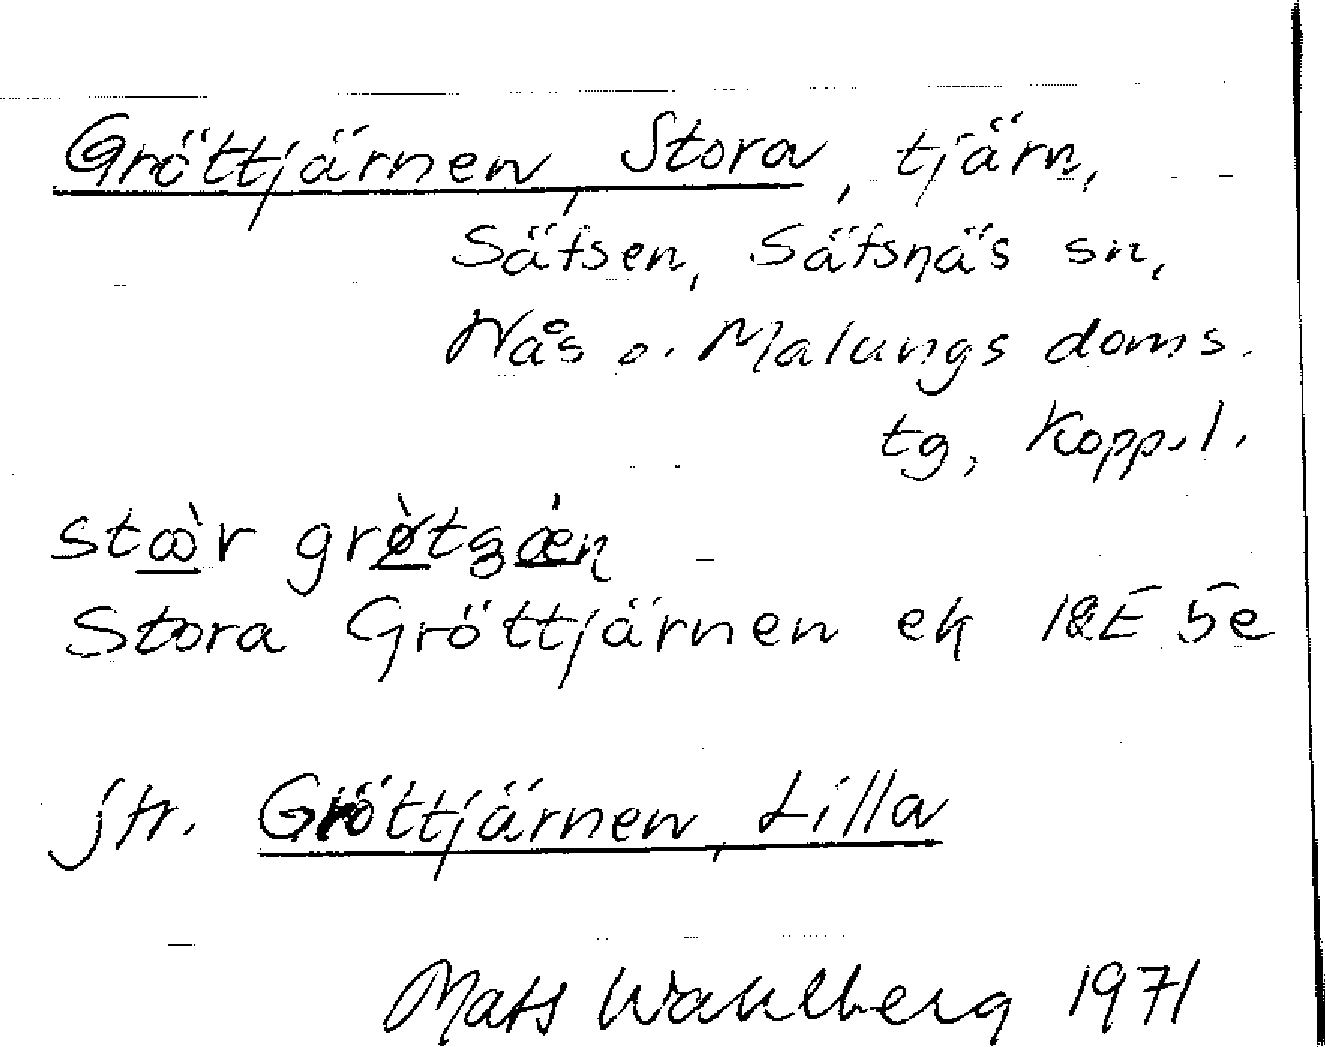 Gröttjärnen, Stora, tjärn,
Säfsen, Säfsnäs sn,
Nås o. Malungs doms.
tg, Koppl.
Stora Gröttjärnen ek 12E 5e
jfr. Gröttjärnen, Lilla
Mats Wahlberg 1971